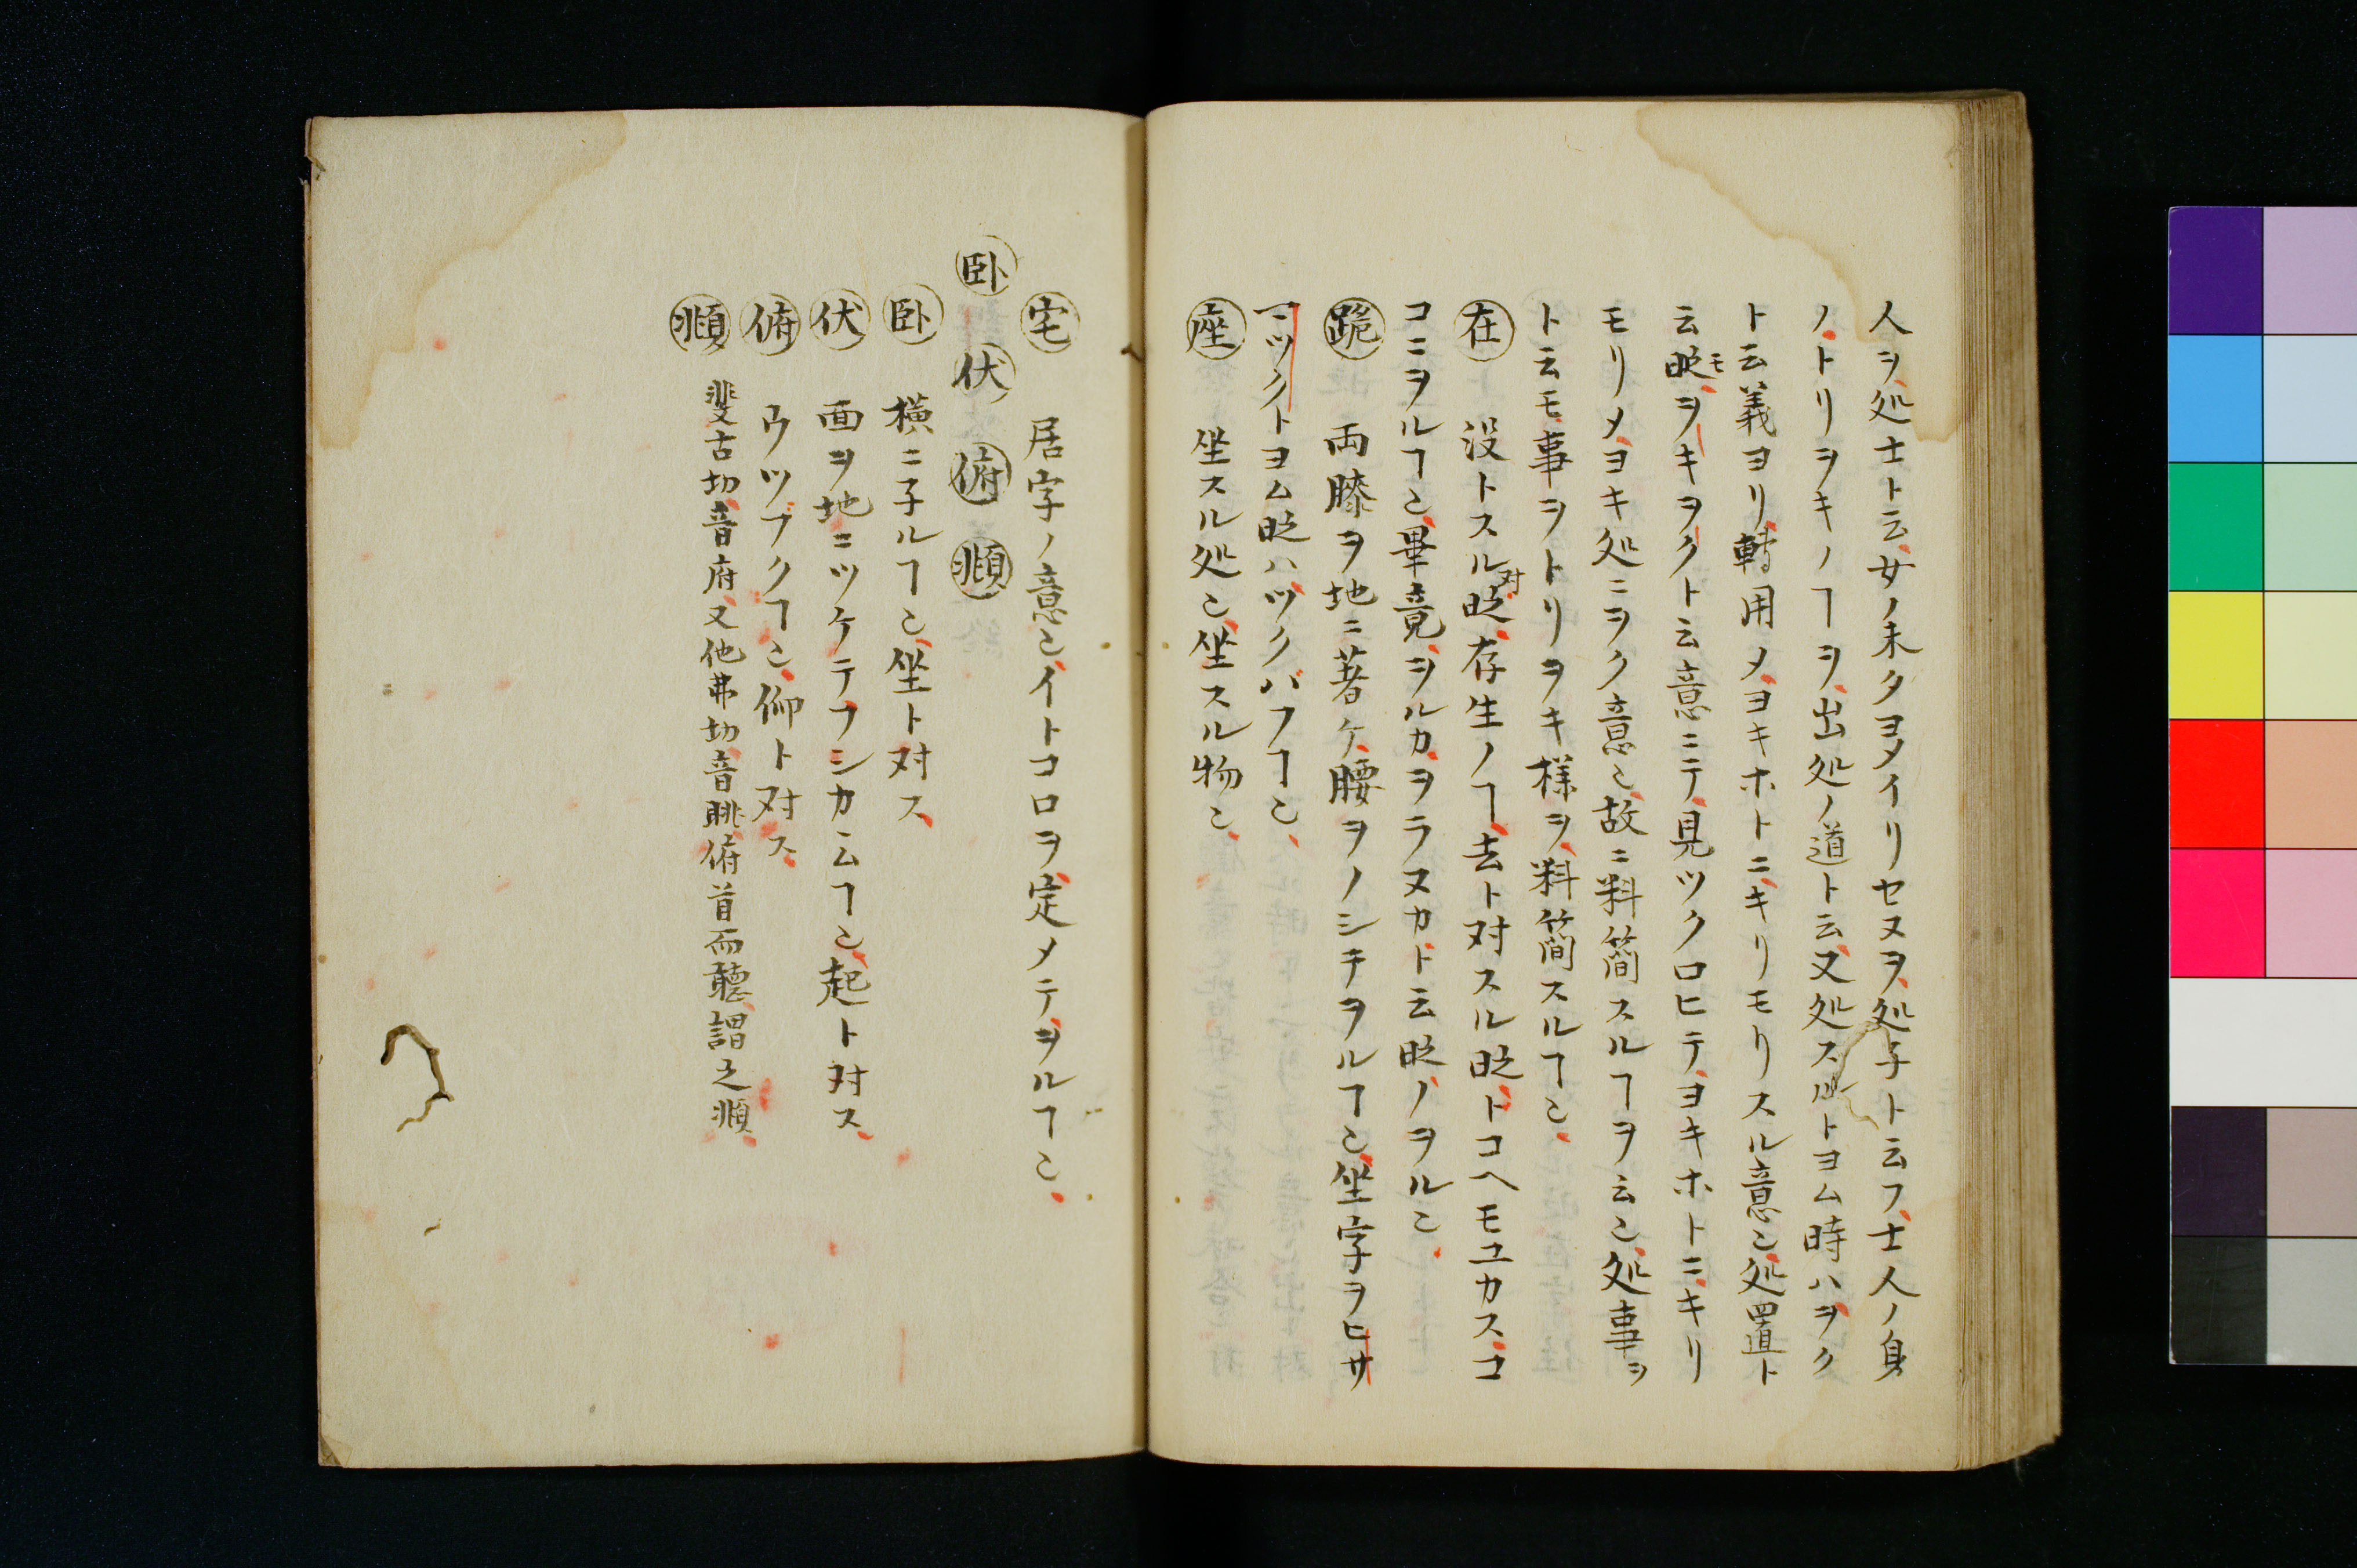 人ヲ処士ト云女ノ未タヨメイリセヌヲ処子ト云フ士人ノ身
ノトリヲキノヿヲ出処ノ道ト云又処スルトヨム時ハヲク
ト云義ヨリ轉用メヨキホトニキリモリスル意也処置ト
云时モヲキヲクト云意ニテ見ツクロヒテヨキホトニキリ
モリメヨキ処ニヲク意也故ニ料簡スルヿヲ云也処事ヲ
ト云モ事ヲトリヲキ様ヲ料簡スルヿ也
在 没トスル对时存生ノヿ去ト対スル时トコヘモユカスコ
コニヲルヿ也畢竟ヲルカヲラヌカト云时ノヲル也
跪 両膝ヲ地ニ著ケ腰ヲノシキヲルヿ也坐字ヲヒサ
マツクトヨム时ハツクバフヿ也
座 坐スル処也坐スル物也
宅 居字ノ意也イトコロヲ定メテヲルヿ也
卧 伏 俯 頫
卧 横ニ子ルヿ也坐ト対ス
伏 面ヲ地ニツケテフシカムヿ也起ト対ス
俯 ウツブクヿ也仰ト対ス
頫 斐古切音府又他弗切音眺俯首而聽謂之頫